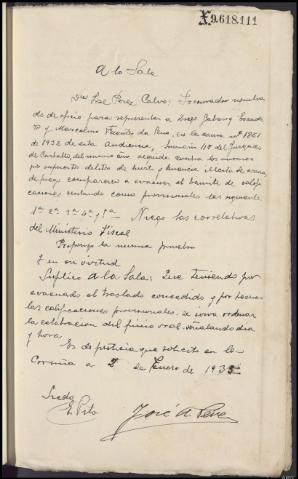 X9.618.111
A la Sala
Don José Pérez Calvo: Procurador nombra
do de oficio para representar a Diego
y Marcelino Vicente la Rua, en la causa nº 1861
de 1932 de esta Audiencia, sumario 118 del Juzgado
de Carballo del mismo año seguida contra los mismos
por supuesto delito de hurto y tenencia ilícita de armas,
digo: comparezco a evacuar el trámite de califi
caciones, sentando como provisionales las siguientes
1ª 2ª 3ª 4ª y 5ª Niego las correlativas
del Ministerio Fiscal
Propongo la misma prueba
Y en su virtud
Suplico a la Sala: Que teniendo por
evacuado el traslado concedido y por hechas
las calificaciones provisionales, se sirva ordenar
la celebración del juicio oral señalando día
y hora.
Es de justicia que solicito en La
Coruña a 2 de Enero de 1935
José A. Pérez